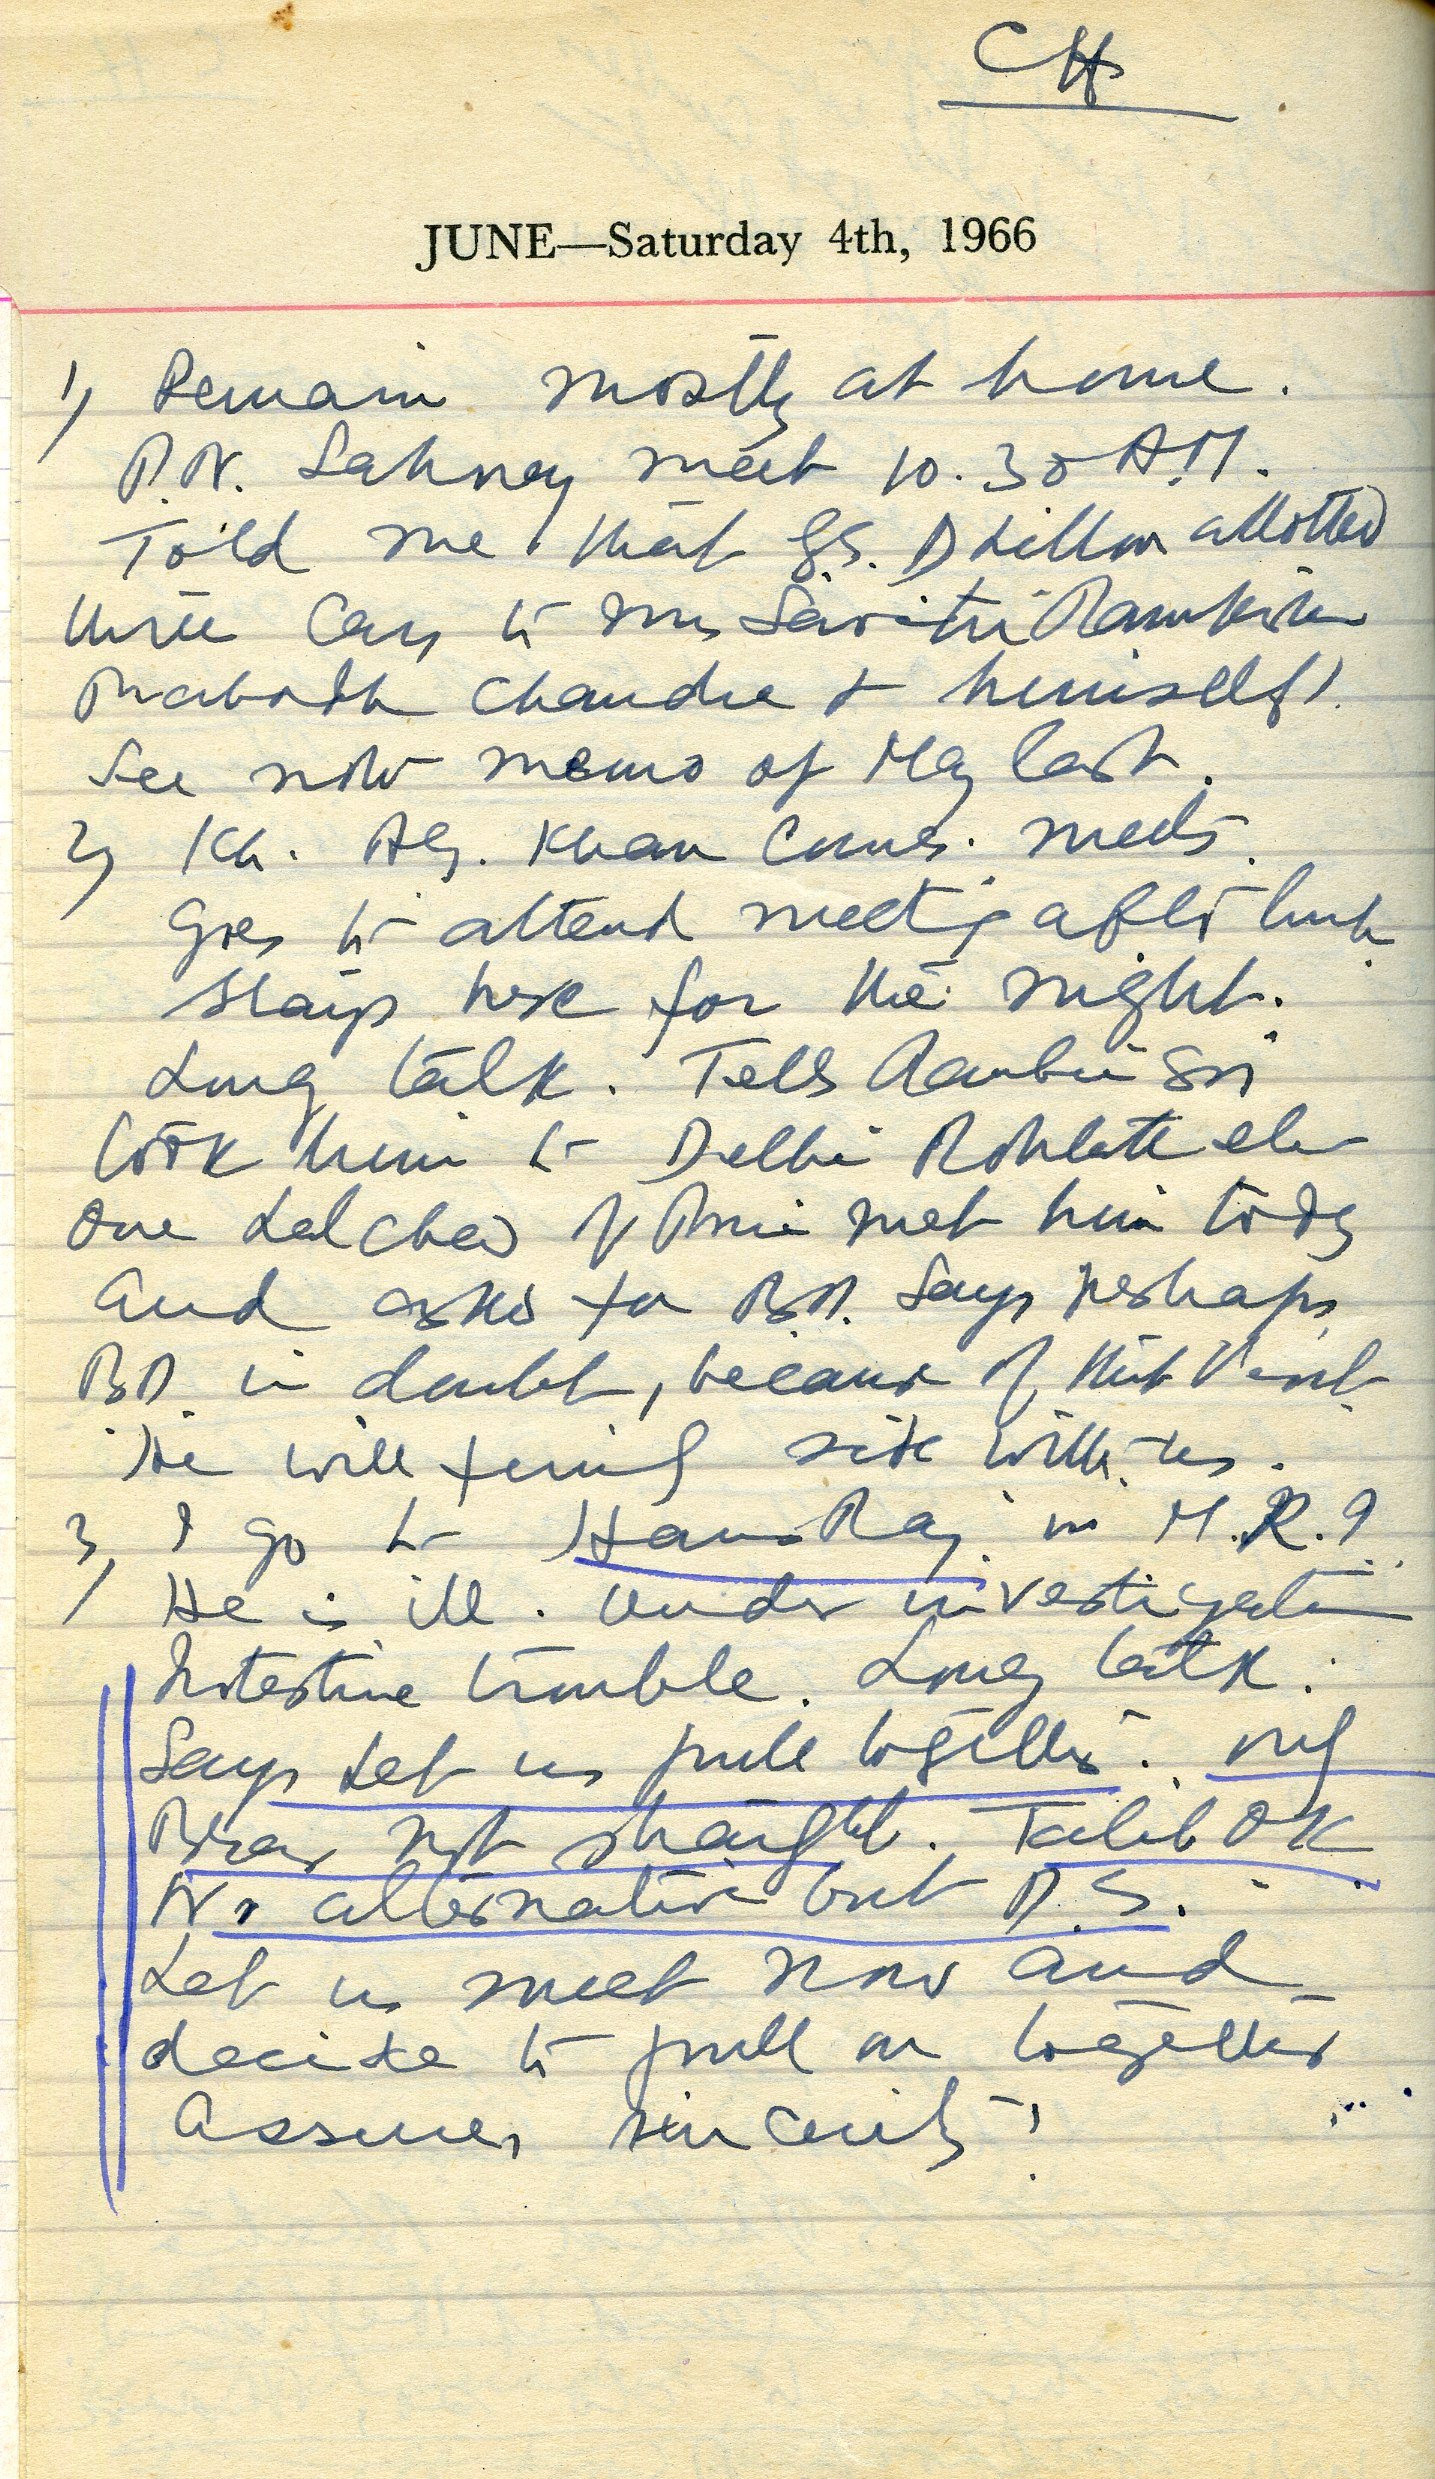 CH
JUNE—Saturday 4th, 1966
1) Remain mostly at home.
P.N. Sahney meet 10.30 A.M.
Told me that G.S. Dhillon allotted
three Cars to Mrs Savitri Ramkishan
Prabodh Chandra & himself!
See note memo of May last.
2) Kh. Ag. Khan Comes. meets.
Goes to attend meeting after lunch
Stays here for the night.
Long talk. Tells Ranbir Singh
took him to Delhi Rohtak
One Lal Chand of met him today
and asks for B.D. Says perhaps
BD in doubt, because of this Visit
He will side with us.
3) I go to Hans Raj in M.R.?
He is ill. Under investigation
Intestine trouble. Long talk.
Says Let us pull together. my
Brar not straight. Talib OK
No alternative but D.S.
Let us meet now and
decide to pull on together
Assures sincerity!